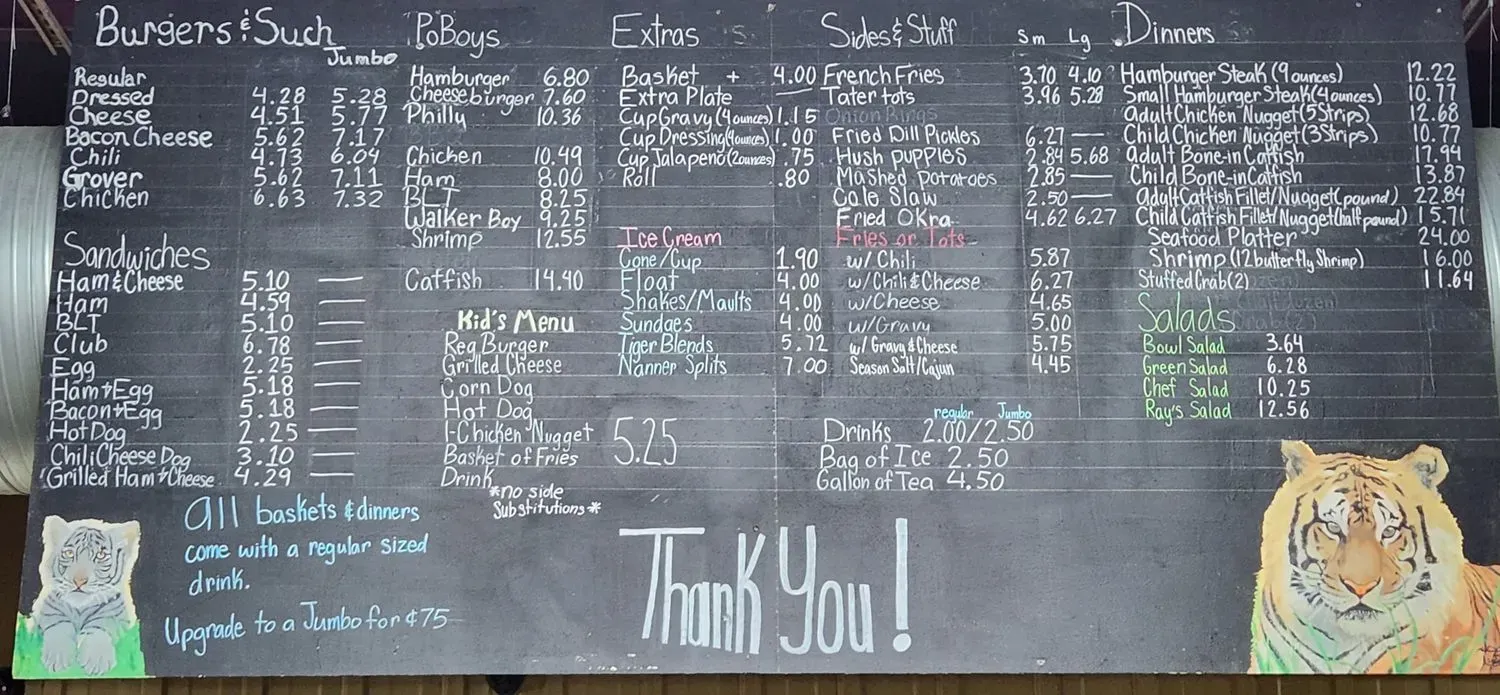 Burgers & Such
Jumbo
Regular
Dressed 4.28 5.28
Cheese 4.51 5.77
Bacon Cheese 5.62 7.17
Chili 4.73 6.04
Grover 5.62 7.11
Chicken 6.63 7.32
Sandwiches
Ham & Cheese 5.10 —
Ham 4.59 —
BLT 5.10 —
Club 6.78 —
Egg 2.25 —
Ham + Egg 5.18 —
Bacon + Egg 5.18 —
Hot Dog 2.25 —
Chili Cheese Dog 3.10 —
Grilled Ham + Cheese 4.29 —
All baskets & dinners
come with a regular sized
drink.
Upgrade to a Jumbo for ¢75
PoBoys
Hamburger 6.80
Cheeseburger 7.60
Philly 10.36
Chicken 10.49
Ham 8.00
BLT 8.25
Walker Boy 9.25
Shrimp 12.55
Catfish 14.40
Kid's Menu
Reg Burger
Grilled Cheese
Corn Dog
Hot Dog
1-Chicken Nugget 5.25
Basket of Fries
Drink
*no side
Substitutions*
Extras
Basket + 4.00
Extra Plate
Cup Gravy (4 ounces) 1.15
Cup Dressing (4 ounces) 1.00
Cup Jalapeno (2 ounces) .75
Roll .80
Ice Cream
Cone/Cup 1.90
Float 4.00
Shakes/Maults 4.00
Sundaes 4.00
Tiger Blends 5.72
Nanner Splits 7.00
Sides & Stuff Sm Lg
French Fries 3.70 4.10
Tater tots 3.96 5.28
Onion Rings
Fried Dill Pickles 6.27 —
Hush puppies 2.84 5.68
Mashed Potatoes 2.85 —
Cale Slaw 2.50 —
Fried Okra 4.62 6.27
Fries or Tots
w/ Chili 5.87
w/ Chili & Cheese 6.27
w/ Cheese 4.65
w/ Gravy 5.00
w/ Gravy & Cheese 5.75
Season Salt/Cajun 4.45
regular Jumbo
Drinks 2.00/2.50
Bag of Ice 2.50
Gallon of Tea 4.50
Dinners
Hamburger Steak (9 ounces) 12.22
Small Hamburger Steak (4 ounces) 10.77
Adult Chicken Nugget (5 Strips) 12.68
Child Chicken Nugget (3 Strips) 10.77
Adult Bone-in Catfish 17.94
Child Bone-in Catfish 13.87
Adult Catfish Fillet/Nugget (pound) 22.84
Child Catfish Fillet/Nugget (half pound) 15.71
Seafood Platter 24.00
Shrimp (12 butterfly Shrimp) 16.00
Stuffed Crab (2) 11.64
Salads
Bowl Salad 3.64
Green Salad 6.28
Chef Salad 10.25
Ray's Salad 12.56
Thank You!